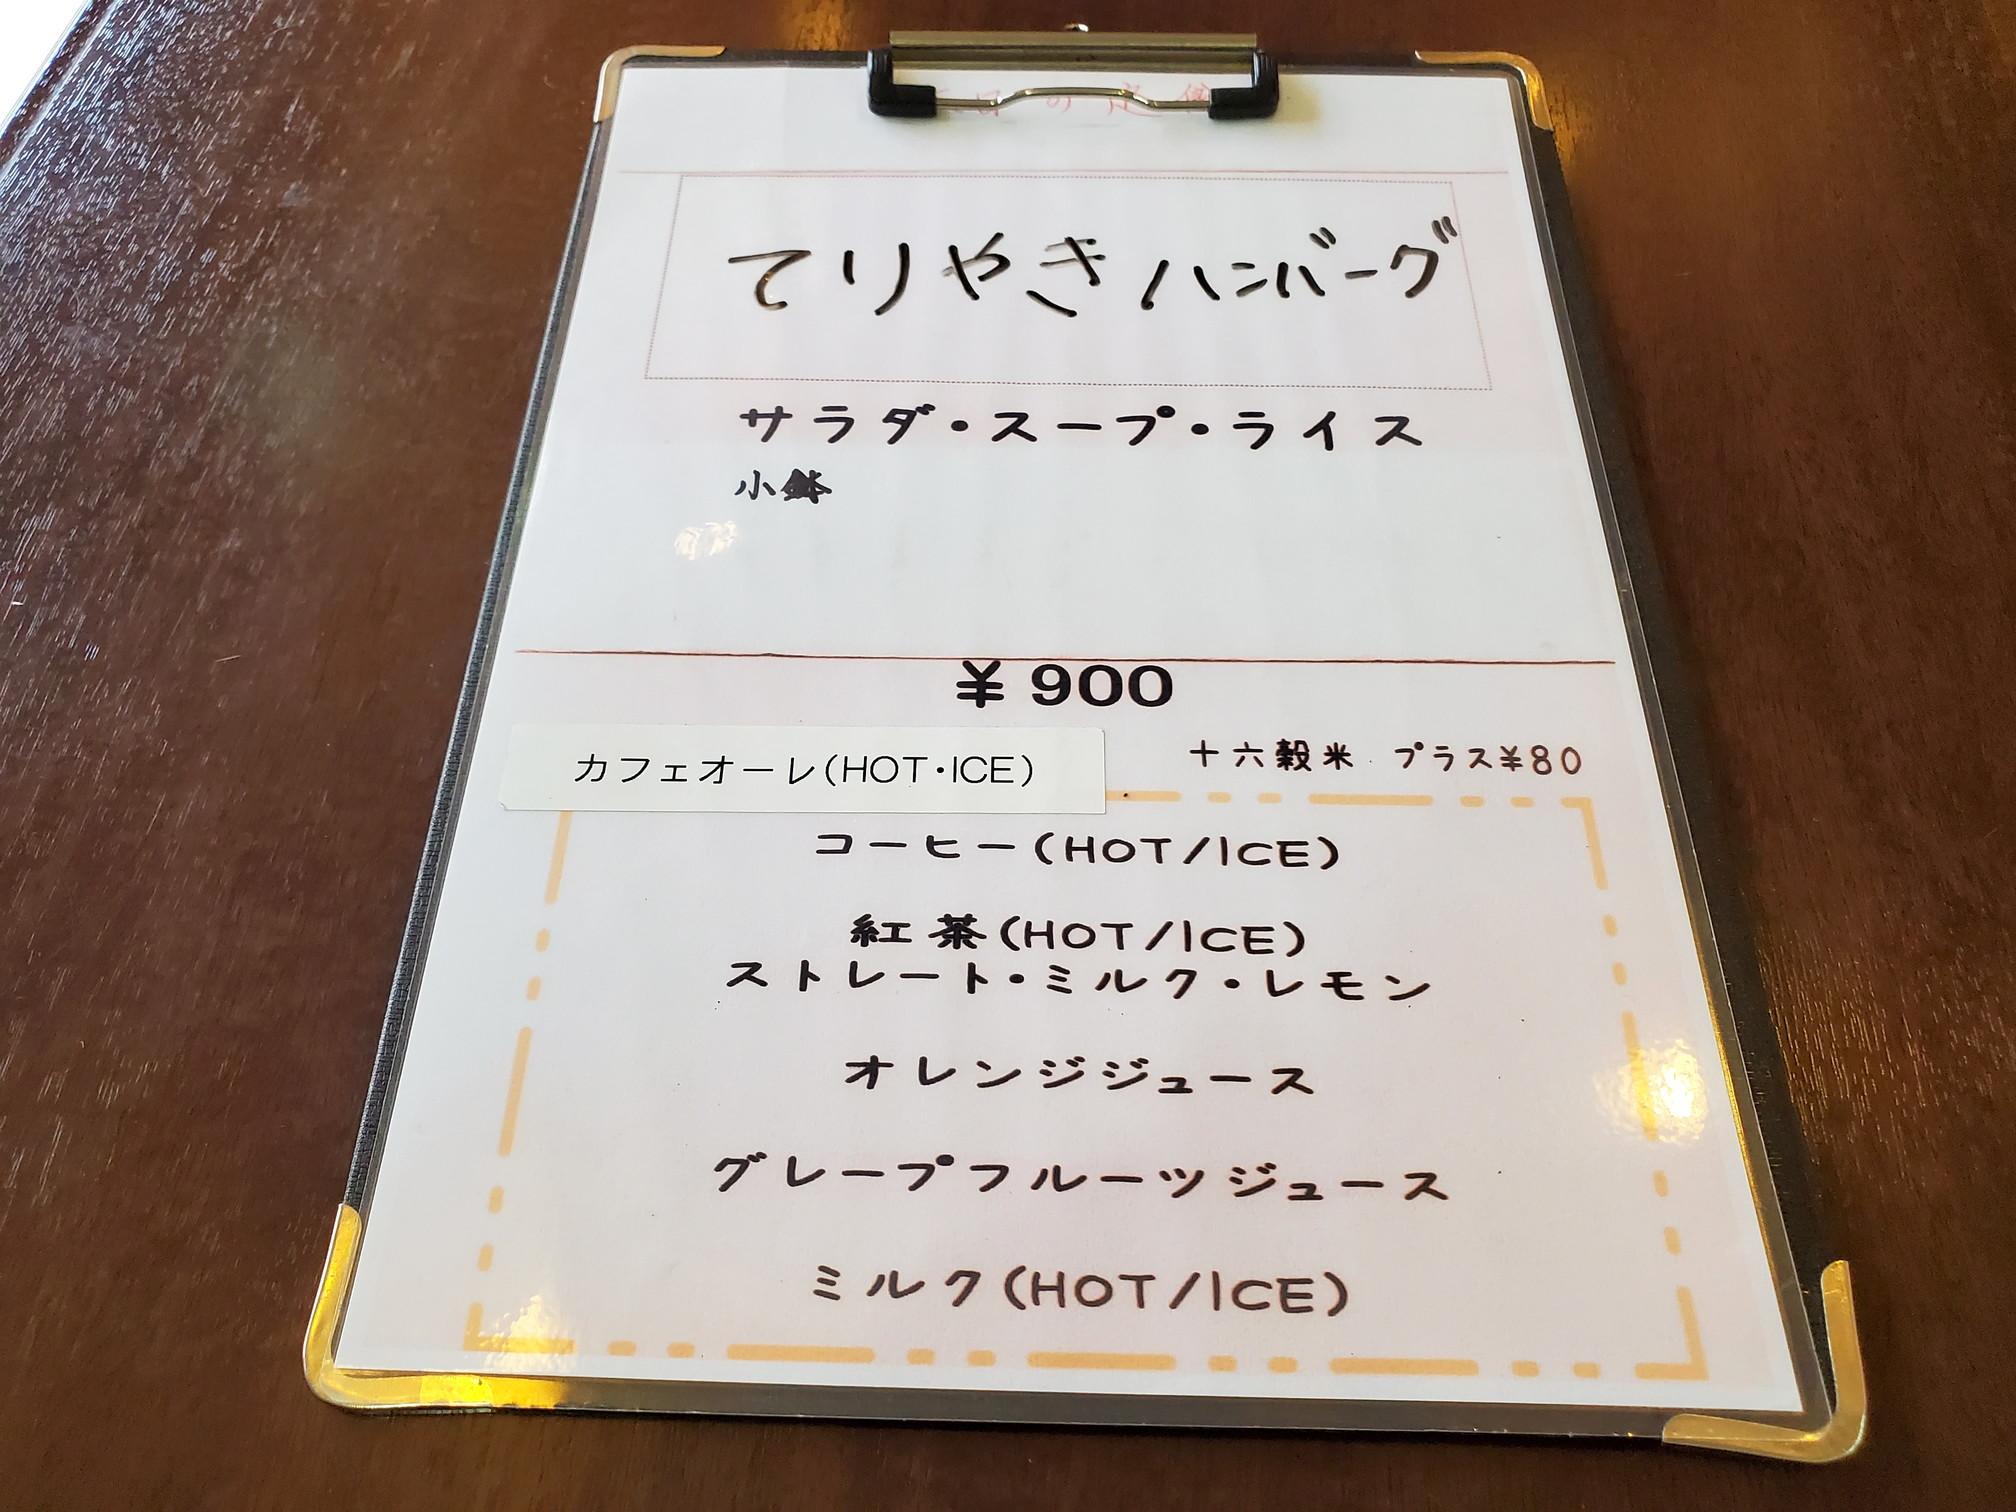 てりやきハンバーグ
サラダ・スープ・ライス
小鉢
¥900
十六穀米 プラス¥80
カフェオーレ(HOT・ICE)
コーヒー(HOT/ICE)
紅茶(HOT/ICE)
ストレート・ミルク・レモン
オレンジジュース
グレープフルーツジュース
ミルク(HOT/ICE)